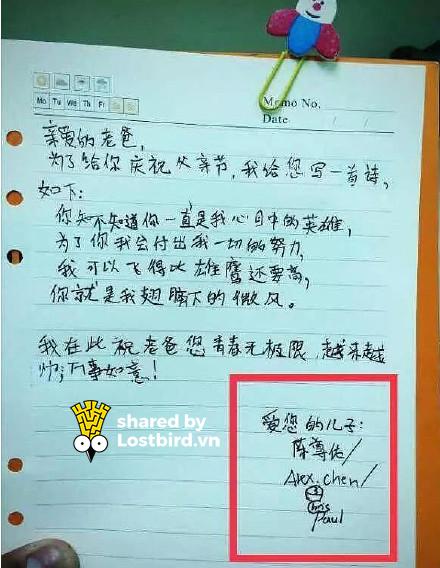 Memo No.
Mo Tu We Th Fr Sa Su
Date / /
亲爱的老爸，
为了给你庆祝父亲节，我给您写一首诗，
如下：
你知不知道你一直是我心目中的英雄，
为了你我会付出我一切的努力，
我可以飞得比雄鹰还要高，
你就是我翅膀下的微风。
我在此祝老爸您青春无极限，越来越
帅；万事如意！
shared by
Lostbird.vn
爱您的儿子：
陈尊佑/
Alex.chen/
Paul